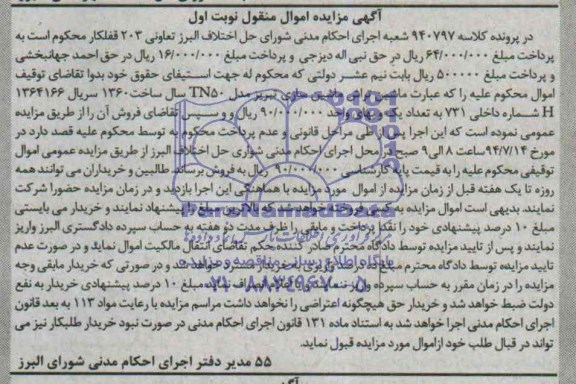 آگهی مزایده اموال منقول نوبت اول
در پرونده کلاسه ۹۴۰۷۹۷ شعبه اجرای احکام مدنی شورای حل اختلاف البرز تعاونی ۲۰۳ قفلکار محکوم است به
پرداخت مبلغ ۶۴/۰۰۰/۰۰۰ ریال در حق نبی اله دیزجی و پرداخت مبلغ ۱۶/۰۰۰/۰۰۰ ریال در حق احمد جهانبخشی
و پرداخت مبلغ ۵۰۰۰۰۰ ریال بابت نیم عشر دولتی که محکوم له جهت استیفای حقوق خود بدوا تقاضای توقیف
اموال محکوم علیه را که عبارت ماشین سازی تبریز مدل TN۵۰ سال ساخت ۱۳۶۰ سریال ۱۳۶۴۱۶۶
H شماره داخلی ۷۳۱ به تعداد یک واحد ۹۰/۰۰۰/۰۰۰ ریال و و سپس تقاضای فروش آن را از طریق مزایده
عمومی نموده است که این اجرا با طی مراحل قانونی و عدم پرداخت محکوم به توسط محکوم علیه قصد دارد در
مورخ ۹۴/۷/۱۴ ساعت ۸ الی ۹ صبح در محل اجرای احکام مدنی شورای حل اختلاف البرز از طریق مزایده عمومی اموال
توقیفی محکوم علیه را به قیمت پایه کارشناسی ۹۰/۰۰۰/۰۰۰ ریال به فروش برساند. طالبین و خریداران می توانند همه
روزه تا یک هفته قبل از زمان مزایده از اموال مورد مزایده با هماهنگی این اجرا بازدید و در زمان مزایده حضورا شرکت
نمایند. بدیهی است اموال مزایده به کسی فروخته خواهد شد که بالاترین مبلغ پیشنهاد نمایند و خریدار می بایستی
مبلغ ۱۰ درصد پیشنهادی خود را نقدا پرداخت و مابقی را ظرف مدت دو هفته به حساب سپرده دادگستری البرز واریز
نمایند و پس از تایید مزایده توسط دادگاه محترم صادر کننده حکم تقاضای انتقال مالکیت اموال نماید و در صورت عدم
تایید مزایده توسط دادگاه محترم مبلغ ده درصد واریزی به خریدار مسترد خواهد شد و در صورتی که خریدار مابقی وجه
مزایده را در زمان مقرر به حساب سپرده واریز ننماید نماید مبلغ ۱۰ درصد پیشنهادی خریدار به نفع
دولت ضبط خواهد شد و خریدار حق هیچگونه اعتراضی را نخواهد داشت مراسم مزایده با رعایت مواد ۱۱۳ به بعد قانون
اجرای احکام مدنی اجرا خواهد شد به استناد ماده ۱۳۱ قانون اجرای احکام مدنی در صورت نبود خریدار طلبکار نیز می
تواند در قبال طلب خود از اموال مورد مزایده قبول نماید.
۵۵ مدیر دفتر اجرای احکام مدنی شورای البرز
ParsNamadData
پایگاه اطلاع رسانی مناقصه و مزایده
۰۲۱-۸۸۳۴۹۶۷۰-۵